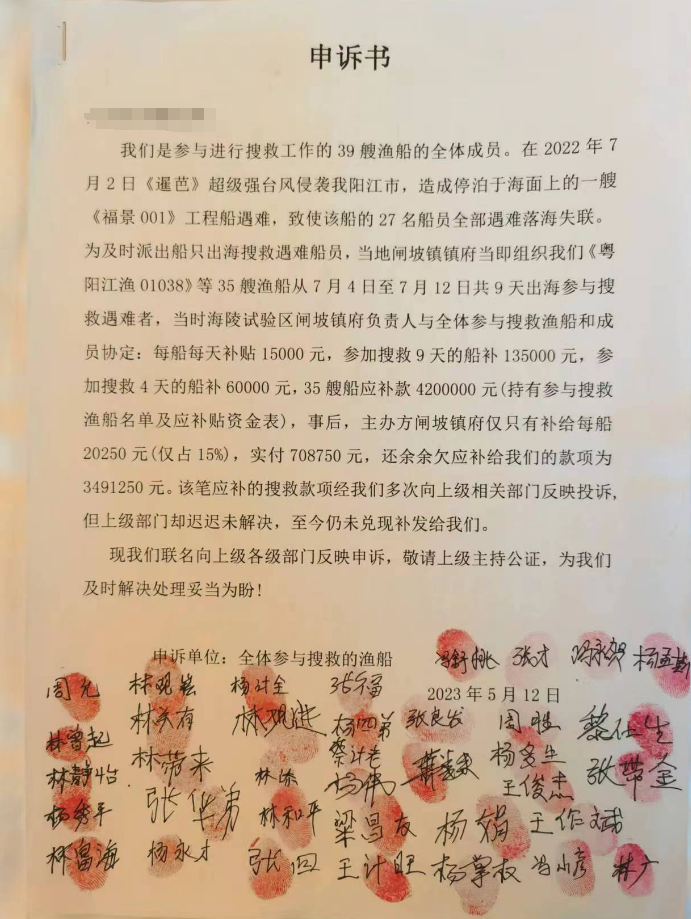 申诉书
我们是参与进行搜救工作的39艘渔船的全体成员。在2022年7
月2日《暹芭》超级强台风侵袭我阳江市，造成停泊于海面上的一艘
《福景001》工程船遇难，致使该船的27名船员全部遇难落海失联。
为及时派出船只出海搜救遇难船员，当地闸坡镇镇府当即组织我们《粤
阳江渔01038》等35艘渔船从7月4日至7月12日共9天出海参与搜
救遇难者，当时海陵试验区闸坡镇府负责人与全体参与搜救渔船和成
员协定：每船每天补贴15000元，参加搜救9天的船补135000元，参
加搜救4天的船补60000元，35艘船应补款4200000元(持有参与搜救
渔船名单及应补贴资金表)，事后，主办方闸坡镇府仅只有补给每船
20250元(仅占15%)，实付708750元，还余余欠应补给我们的款项为
3491250元。该笔应补的搜救款项经我们多次向上级相关部门反映投诉，
但上级部门却迟迟未解决，至今仍未兑现补发给我们。
现我们联名向上级各级部门反映申诉，敬请上级主持公证，为我们
及时解决处理妥当为盼！
申诉单位：全体参与搜救的渔船 张才
周允 杨计全
2023年5月12日
林关有 杨四弟 张良发
林静怡 林带来 杨伟 王俊杰 张带金
杨秀平 张华弟 林和平 梁昌友 杨娟 王作斌
林昌海 杨永才 王计旺 杨掌权 冯小彦 林广